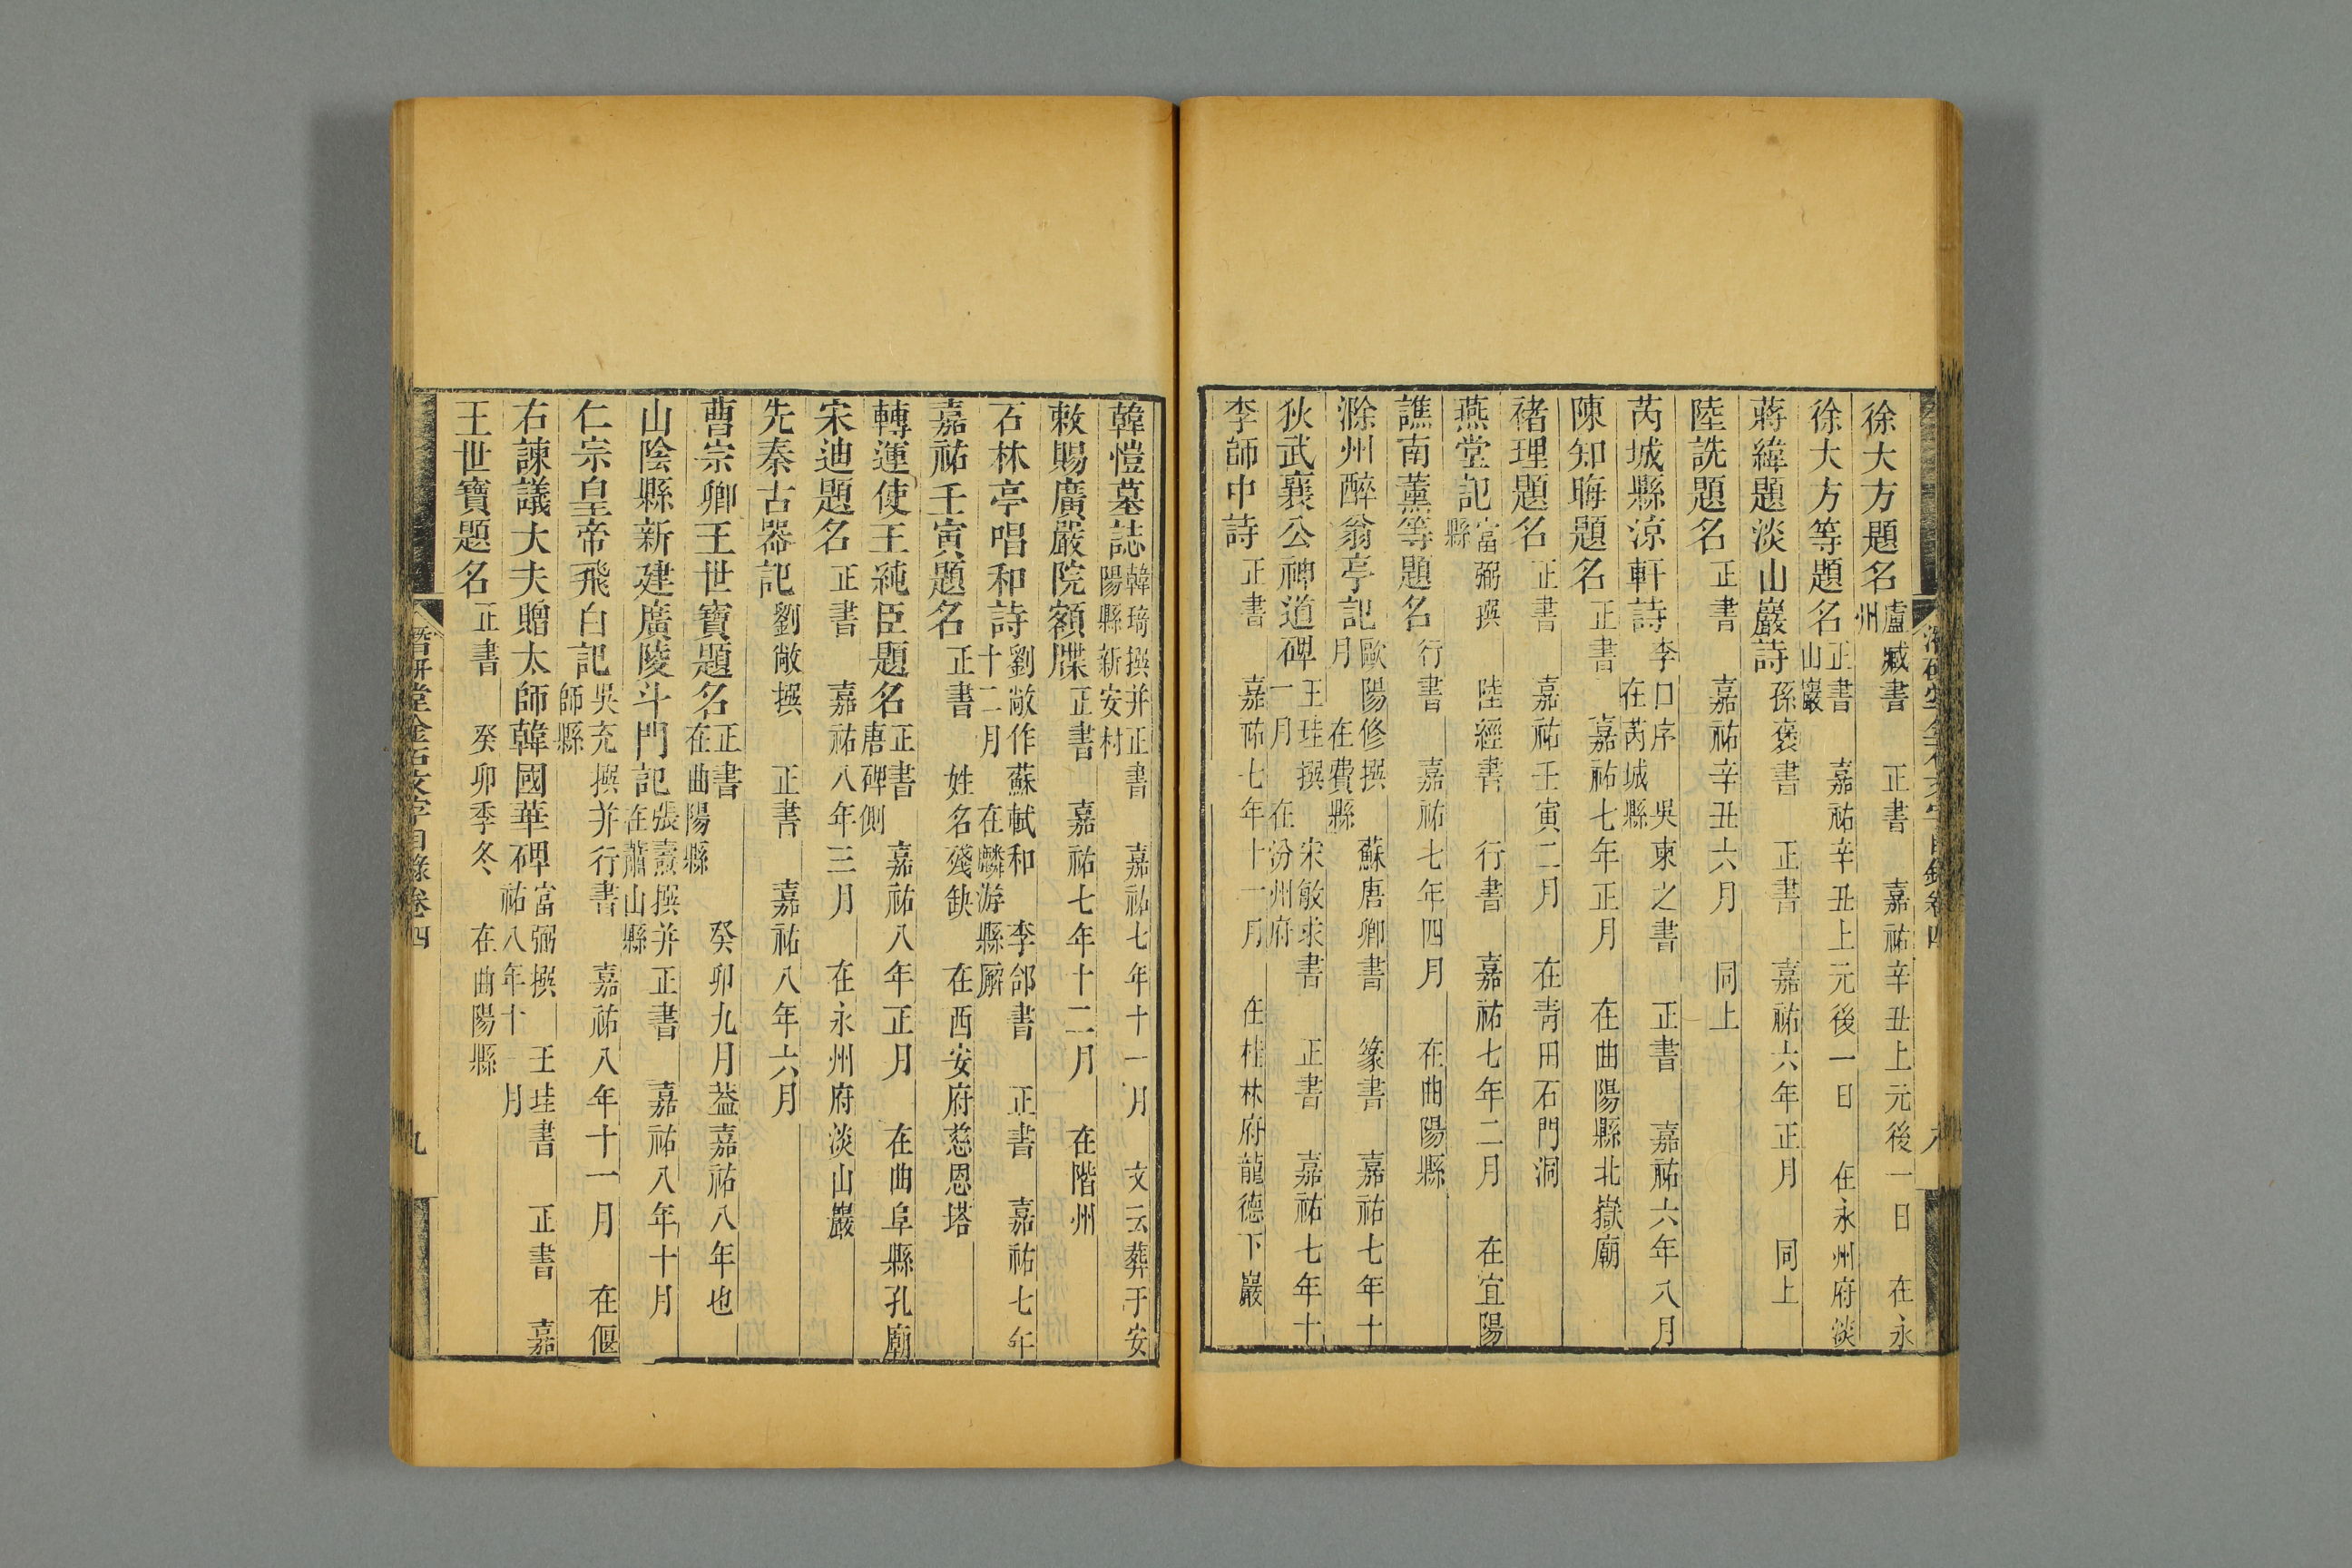 徐大方題名 盧臧書 正書 嘉祐辛丑上元後一日 在永州
徐大方等題名 正書 嘉祐辛丑上元後一日 在永州府淡山巖
蔣緯題淡山巖詩 孫褒書 正書 嘉祐六年正月 同上
陸詵題名 正書 嘉祐辛丑六月 同上
芮城縣涼軒詩 李口序 吳東之書 正書 嘉祐六年八月 在芮城縣
陳知晦題名 正書 嘉祐七年正月 在曲陽縣北嶽廟
褚理題名 正書 嘉祐壬寅二月 在靑田石門洞
燕堂記 富弼撰 陸經書 行書 嘉祐七年二月 在宜陽縣
譙南薰等題名 行書 嘉祐七年四月 在曲陽縣
滁州醉翁亭記 歐陽修撰 蘇唐卿書 篆書 嘉祐七年十月 在費縣
狄武襄公神道碑 王珪撰 宋敏求書 正書 嘉祐七年十一月 在汾州府
李師中詩 正書 嘉祐七年十一月 在桂林府龍德下巖
韓愷墓誌 韓琦撰并正書 嘉祐七年十一月 文云葬于安陽縣新安村
敕賜廣嚴院額牒 正書 嘉祐七年十二月 在階州
石林亭唱和詩 劉敞作 蘇軾和 李郃書 正書 嘉祐七年十二月 在麟游縣廨
嘉祐壬寅題名 正書 姓名殘缺 在西安府慈恩塔
轉運使王純臣題名 正書 嘉祐八年正月 在曲阜縣孔廟唐碑側
宋迪題名 正書 嘉祐八年三月 在永州府淡山巖
先秦古器記 劉敞撰 正書 嘉祐八年六月
曹宗卿王世寶題名 正書 癸卯九月葢嘉祐八年也 在曲陽縣
山陰縣新建廣陵斗門記 張燾撰并正書 嘉祐八年十月 在蕭山縣
仁宗皇帝飛白記 吳充撰并行書 嘉祐八年十一月 在偃師縣
右諫議大夫贈太師韓國華碑 富弼撰 王珪書 正書 嘉祐八年十一月
王世寶題名 正書 癸卯季冬 在曲陽縣
潛硏堂金石文字目錄卷四 九